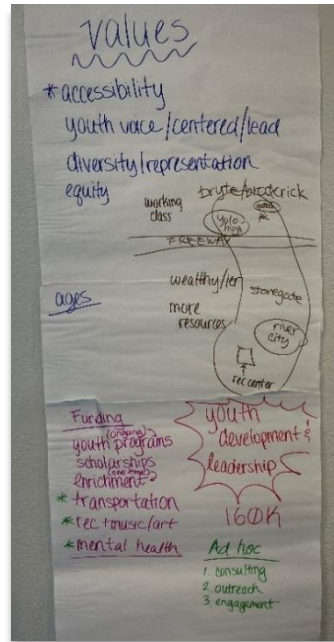 values
*accessibility
youth voice/centered/lead
diversity/representation
equity
bryte/broderick
working
class
yolo-
FREEWAY
wealthy/ier
more
resources
stonegate
river
city
rec center
ages
Funding
(ongoing)
youth programs
scholarships
(one time)
enrichment
*transportation
*rec + music/art
*mental health
youth
development &
leadership
160K
Ad hoc
1. consulting
2. outreach
3. engagement